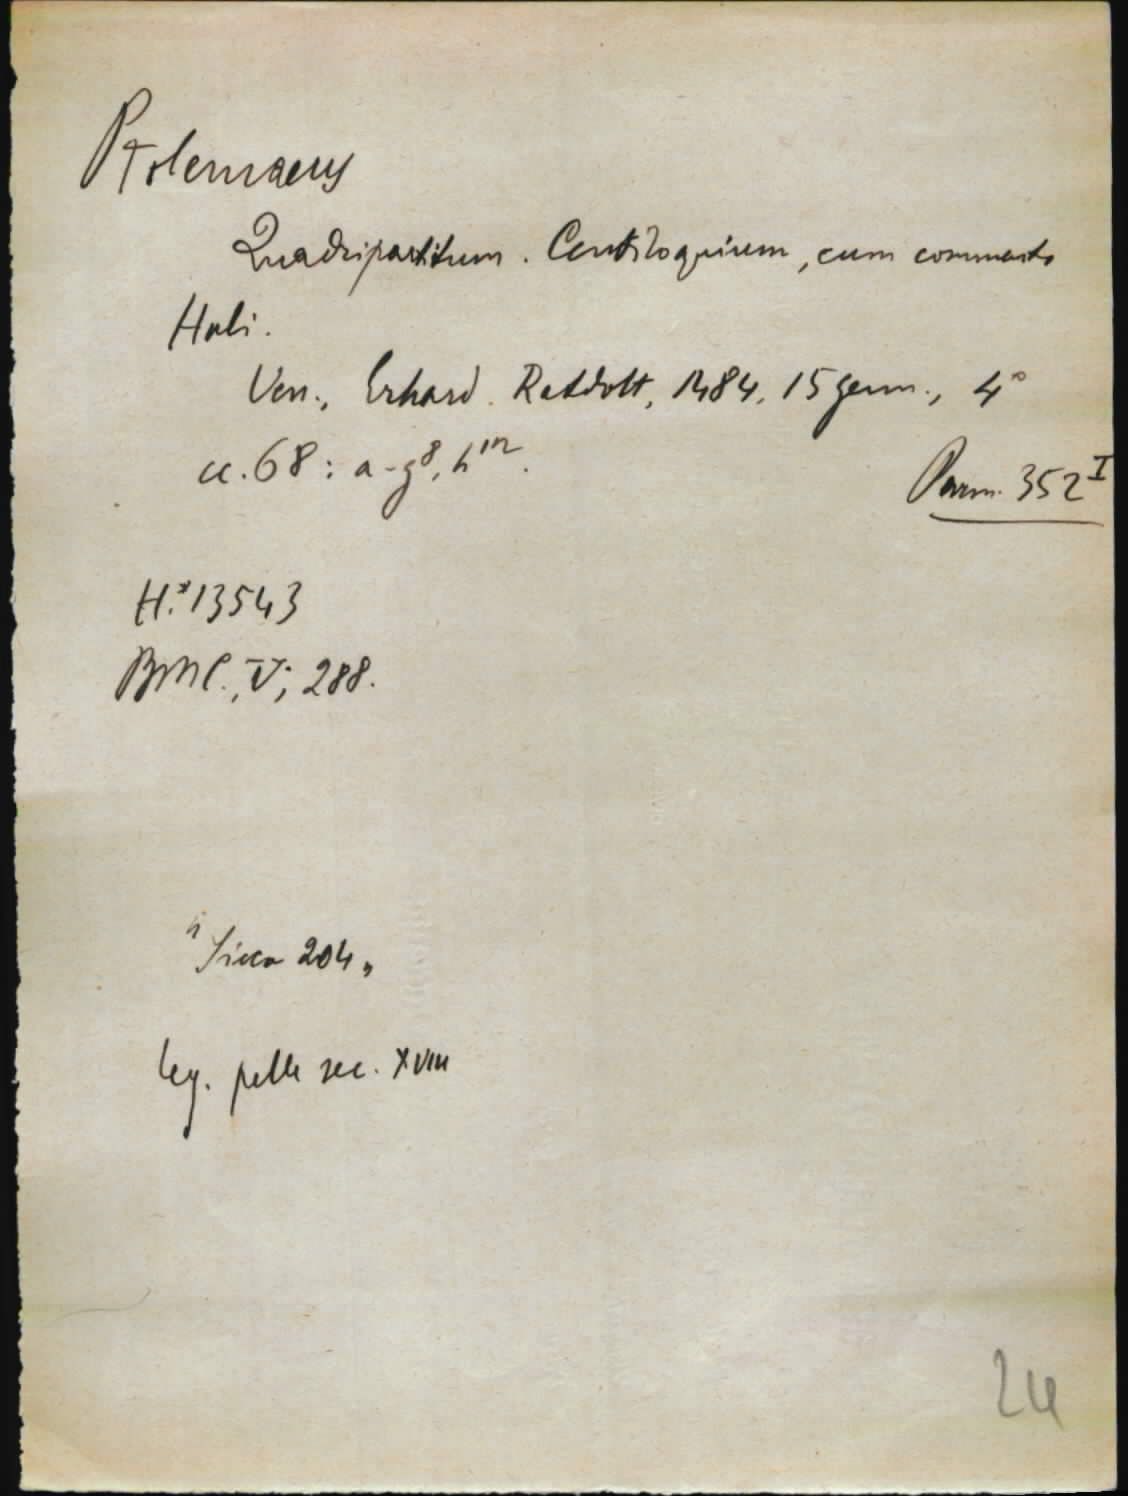 Ptolemaeus
Quadripartitum. Centiloquium, cum commento
Hali.
Ven., Erhard. Ratdolt, 1484, 15 genn., 4°
cc. 68: a-g⁸, h¹².
Parm. 352 I
H.*13543
BMC., V, 288.
"Sicca 204"
leg. pelle sec. XVIII
24